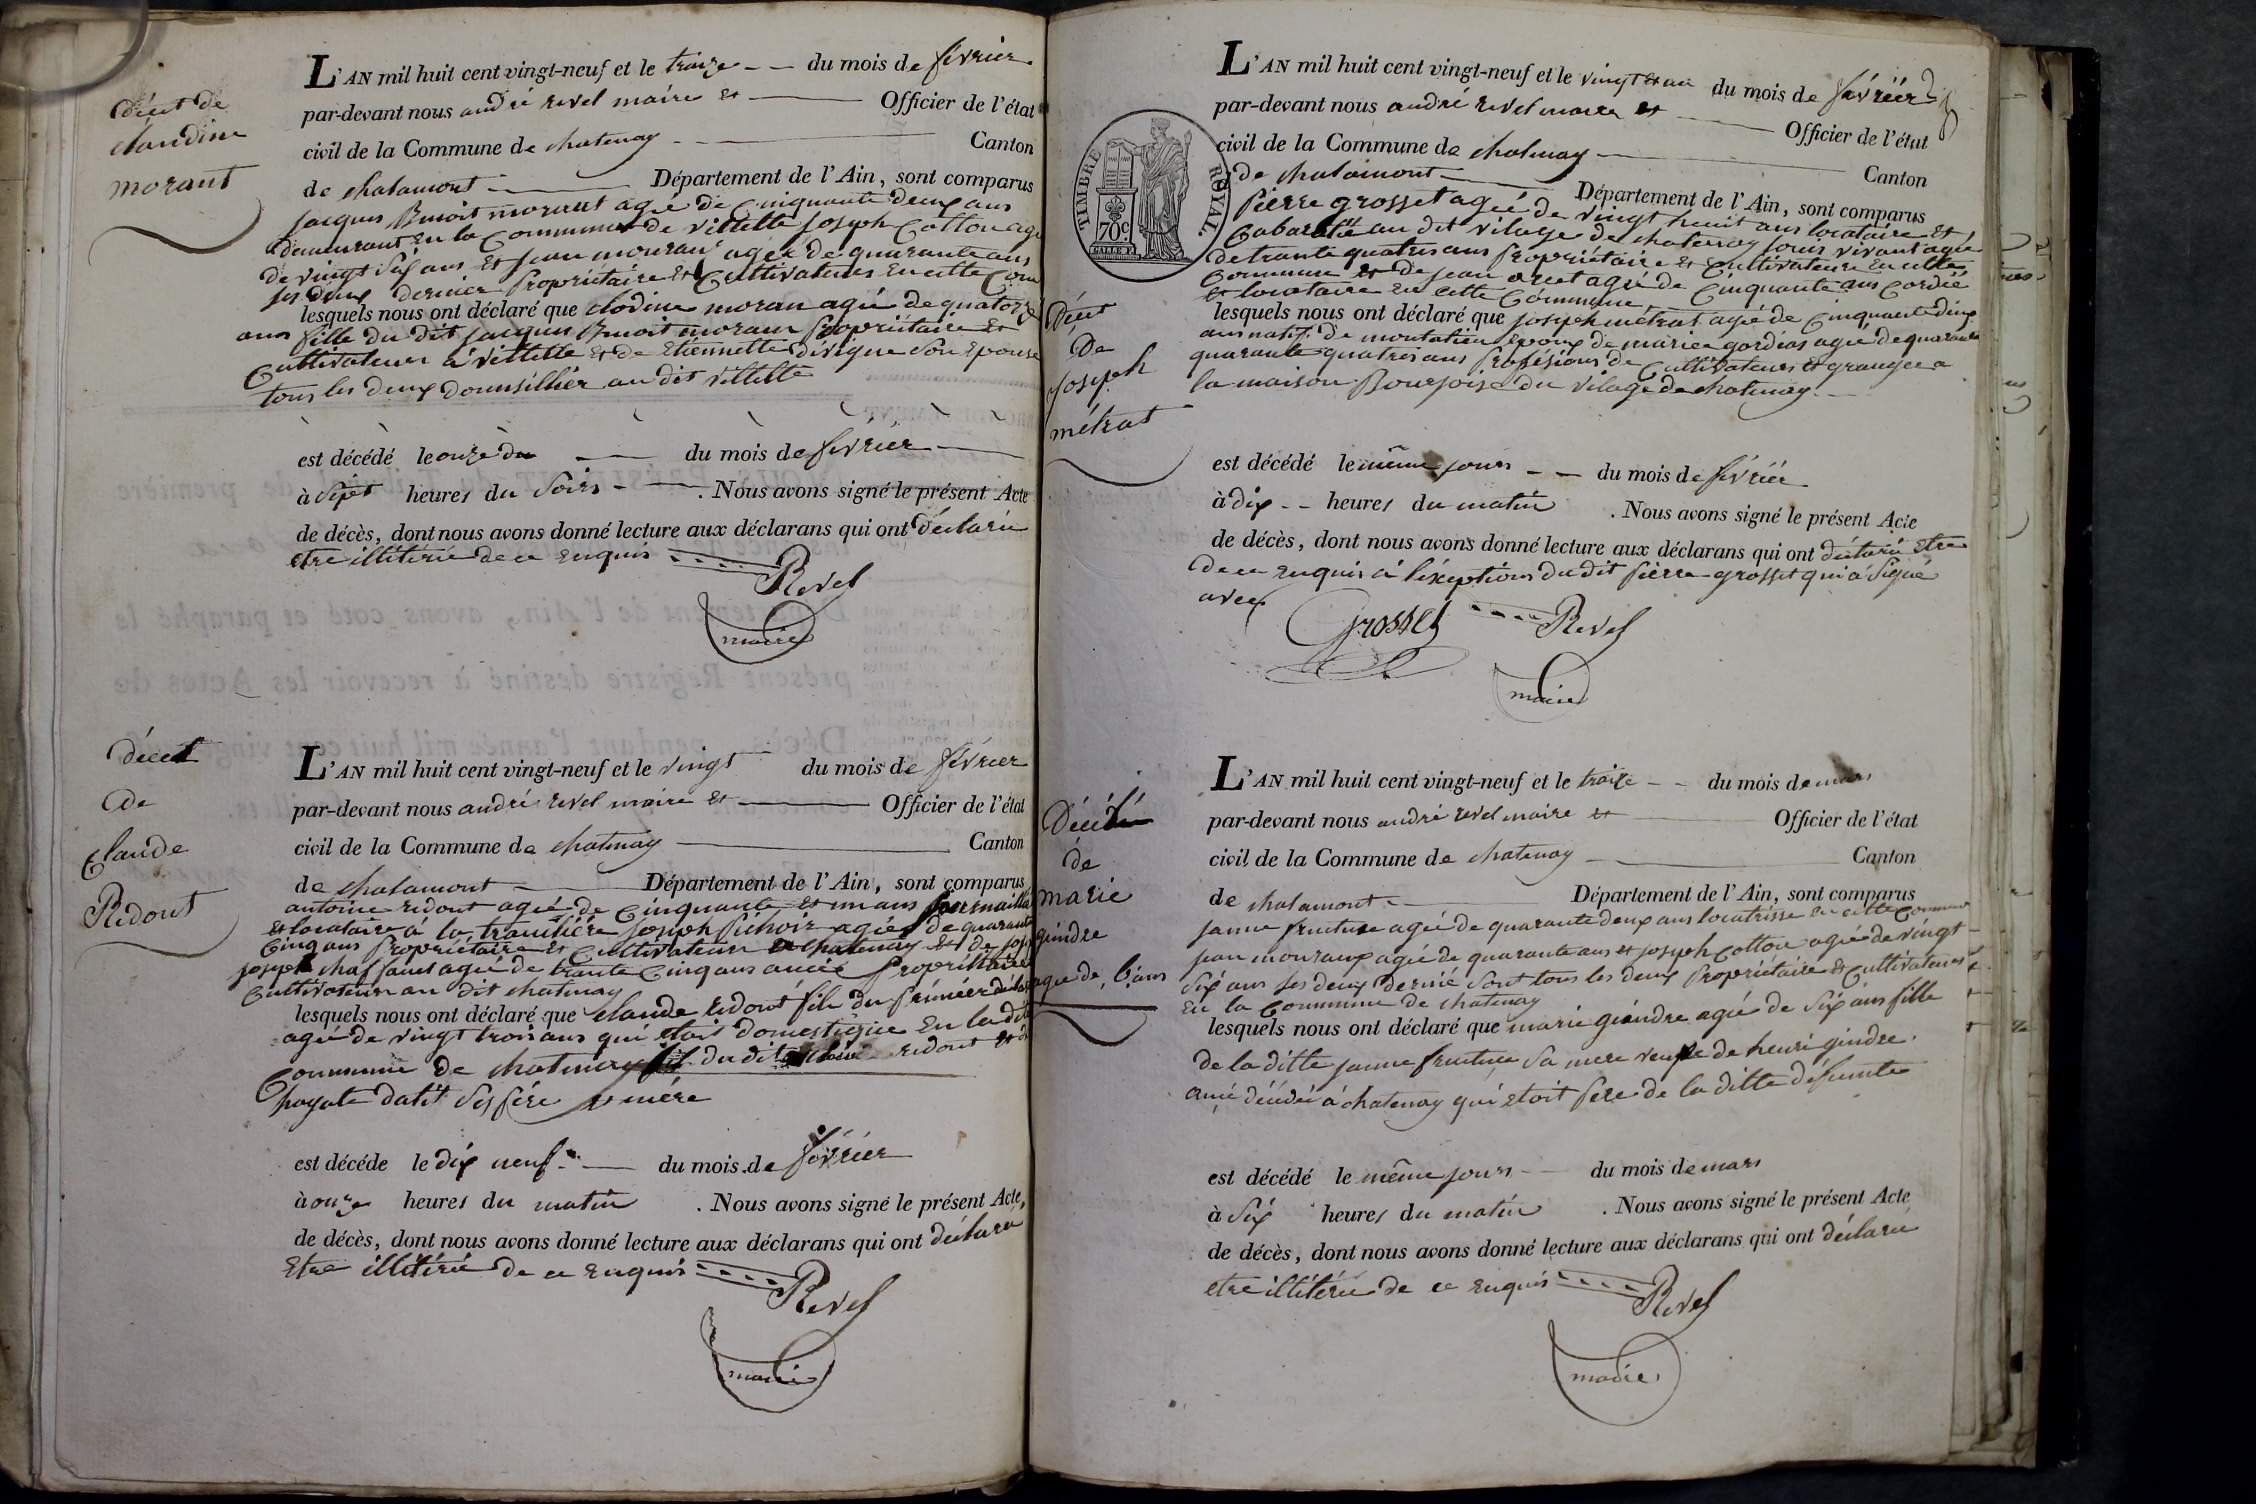 décet de
claudine
morant
L'AN mil huit cent vingt-neuf et le traize -- du mois de février
par-devant nous andré revel maire et Officier de l'état
civil de la Commune de chatenay Canton
de chalamont Département de l'Ain, sont comparus
jacques Benoit morant agée de cinquante deux ans
demeurant en la Commune de villette joseph Cotton agé
de vingt six ans et jean mouraux agée de quarante ans
ses deux dernier Propriétaire et Cultivateurs en cette Com
lesquels nous ont déclaré que clodine moran agée de quatorze
ans fille du dit jacques Benoit moraux propriétaire et
Cultivateur à villette et de Etiennette divigue son Epouse
tous les deux doumsillier au dit villette
est décédé le onze du du mois de février
à sept heures du soirs . Nous avons signé le présent Acte
de décès, dont nous avons donné lecture aux déclarans qui ont déclarée
etre illitérée de ce enquis
Revel
maire
décet
de
Claude
Ridout
L'AN mil huit cent vingt-neuf et le vingt du mois de février
par-devant nous andré revel maire et Officier de l'état
civil de la Commune de chatenay Canton
de chalamont Département de l'Ain, sont comparus
antoine ridout agée de Cinquante et un ans journaillé
et locataire à la tranclière joseph Pichoir agée de quarante
Cinq ans Propriétaire et Cultivateur a chatenay et de jos
joseph agée de trante Cinq ans Propriéttaire
Cultivateur au dit chatenay
lesquels nous ont déclaré que claude ridout fils du
agée de vingt trois ans qui etoit domestique en la ditte
Commune de chatenay fils du dit ridout et de
payate datit ses père et mère
est décéde le dix neuf du mois de février
à onze heures du matin . Nous avons signé le présent Acte,
de décès, dont nous avons donné lecture aux déclarans qui ont déclaré
etre illitérée de ce enquis
Revel
maire
TIMBRE ROYAL
70c
L'AN mil huit cent vingt-neuf et le vingt et un du mois de févriér
par-devant nous andré revel maire et Officier de l'état
civil de la Commune de chatenay Canton
de chalamont Département de l'Ain, sont comparus
Pierre grosset agée de vingt heuit ans locataire et
Cabaratié au dit vilage de chatenay vivant agée
de trante quatres ans Propriétaire et Cultivateur en cette
Commune et de jean agée de Cinquante ans Cordié
et locataire en cette Commune
lesquels nous ont déclaré que joseph métrat agée de Cinquante deux
ans natif de montatieu epoux de marie gordias agée de quarante
quarante quatres ans Profésions de Cultivateurs et grangée a
la maison Bourjoise du vilage de chatenay
décet
De
joseph
métrat
est décédé le même jours -- du mois de février
à dix -- heures du matin . Nous avons signé le présent Acte
de décès, dont nous avons donné lecture aux déclarans qui ont déclaré etre
de ce enquis à l'éxception du dit Pierre grosset qui à signé
avec
Grosset
Revel
maire
Décédé
de
marie
gindre
agée de 6 ans
L'AN mil huit cent vingt-neuf et le traize -- du mois de mars
par-devant nous andré revel maire et Officier de l'état
civil de la Commune de chatenay Canton
de chalamont Département de l'Ain, sont comparus
janne fructuse agée de quarante deux ans locatrisse en cette Commune
jean mouraux agée de quarante ans et joseph Cotton agée de vingt
six ans ses deux dernié sont tous les deux Propriétaire et Cultivateurs
en la Commune de chatenay
lesquels nous ont déclaré que marie giindre agée de six ans fille
de la ditte janne fructuse sa mere veufve de henri gindre
décédé à chatenay qui etoit pere de la ditte défunte
est décédé le même jours du mois de mars
à six heures du matin . Nous avons signé le présent Acte
de décès, dont nous avons donné lecture aux déclarans qui ont déclaré
etre illitérée de ce enquis
Revel
maire